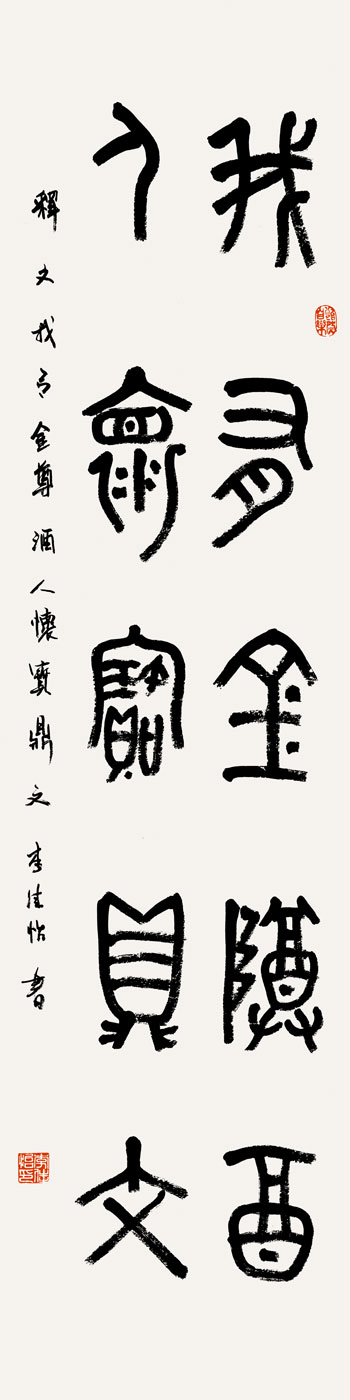 我有金尊酒
人怀宝鼎文
释文我有金尊酒人懷寶鼎文 李佳怡書